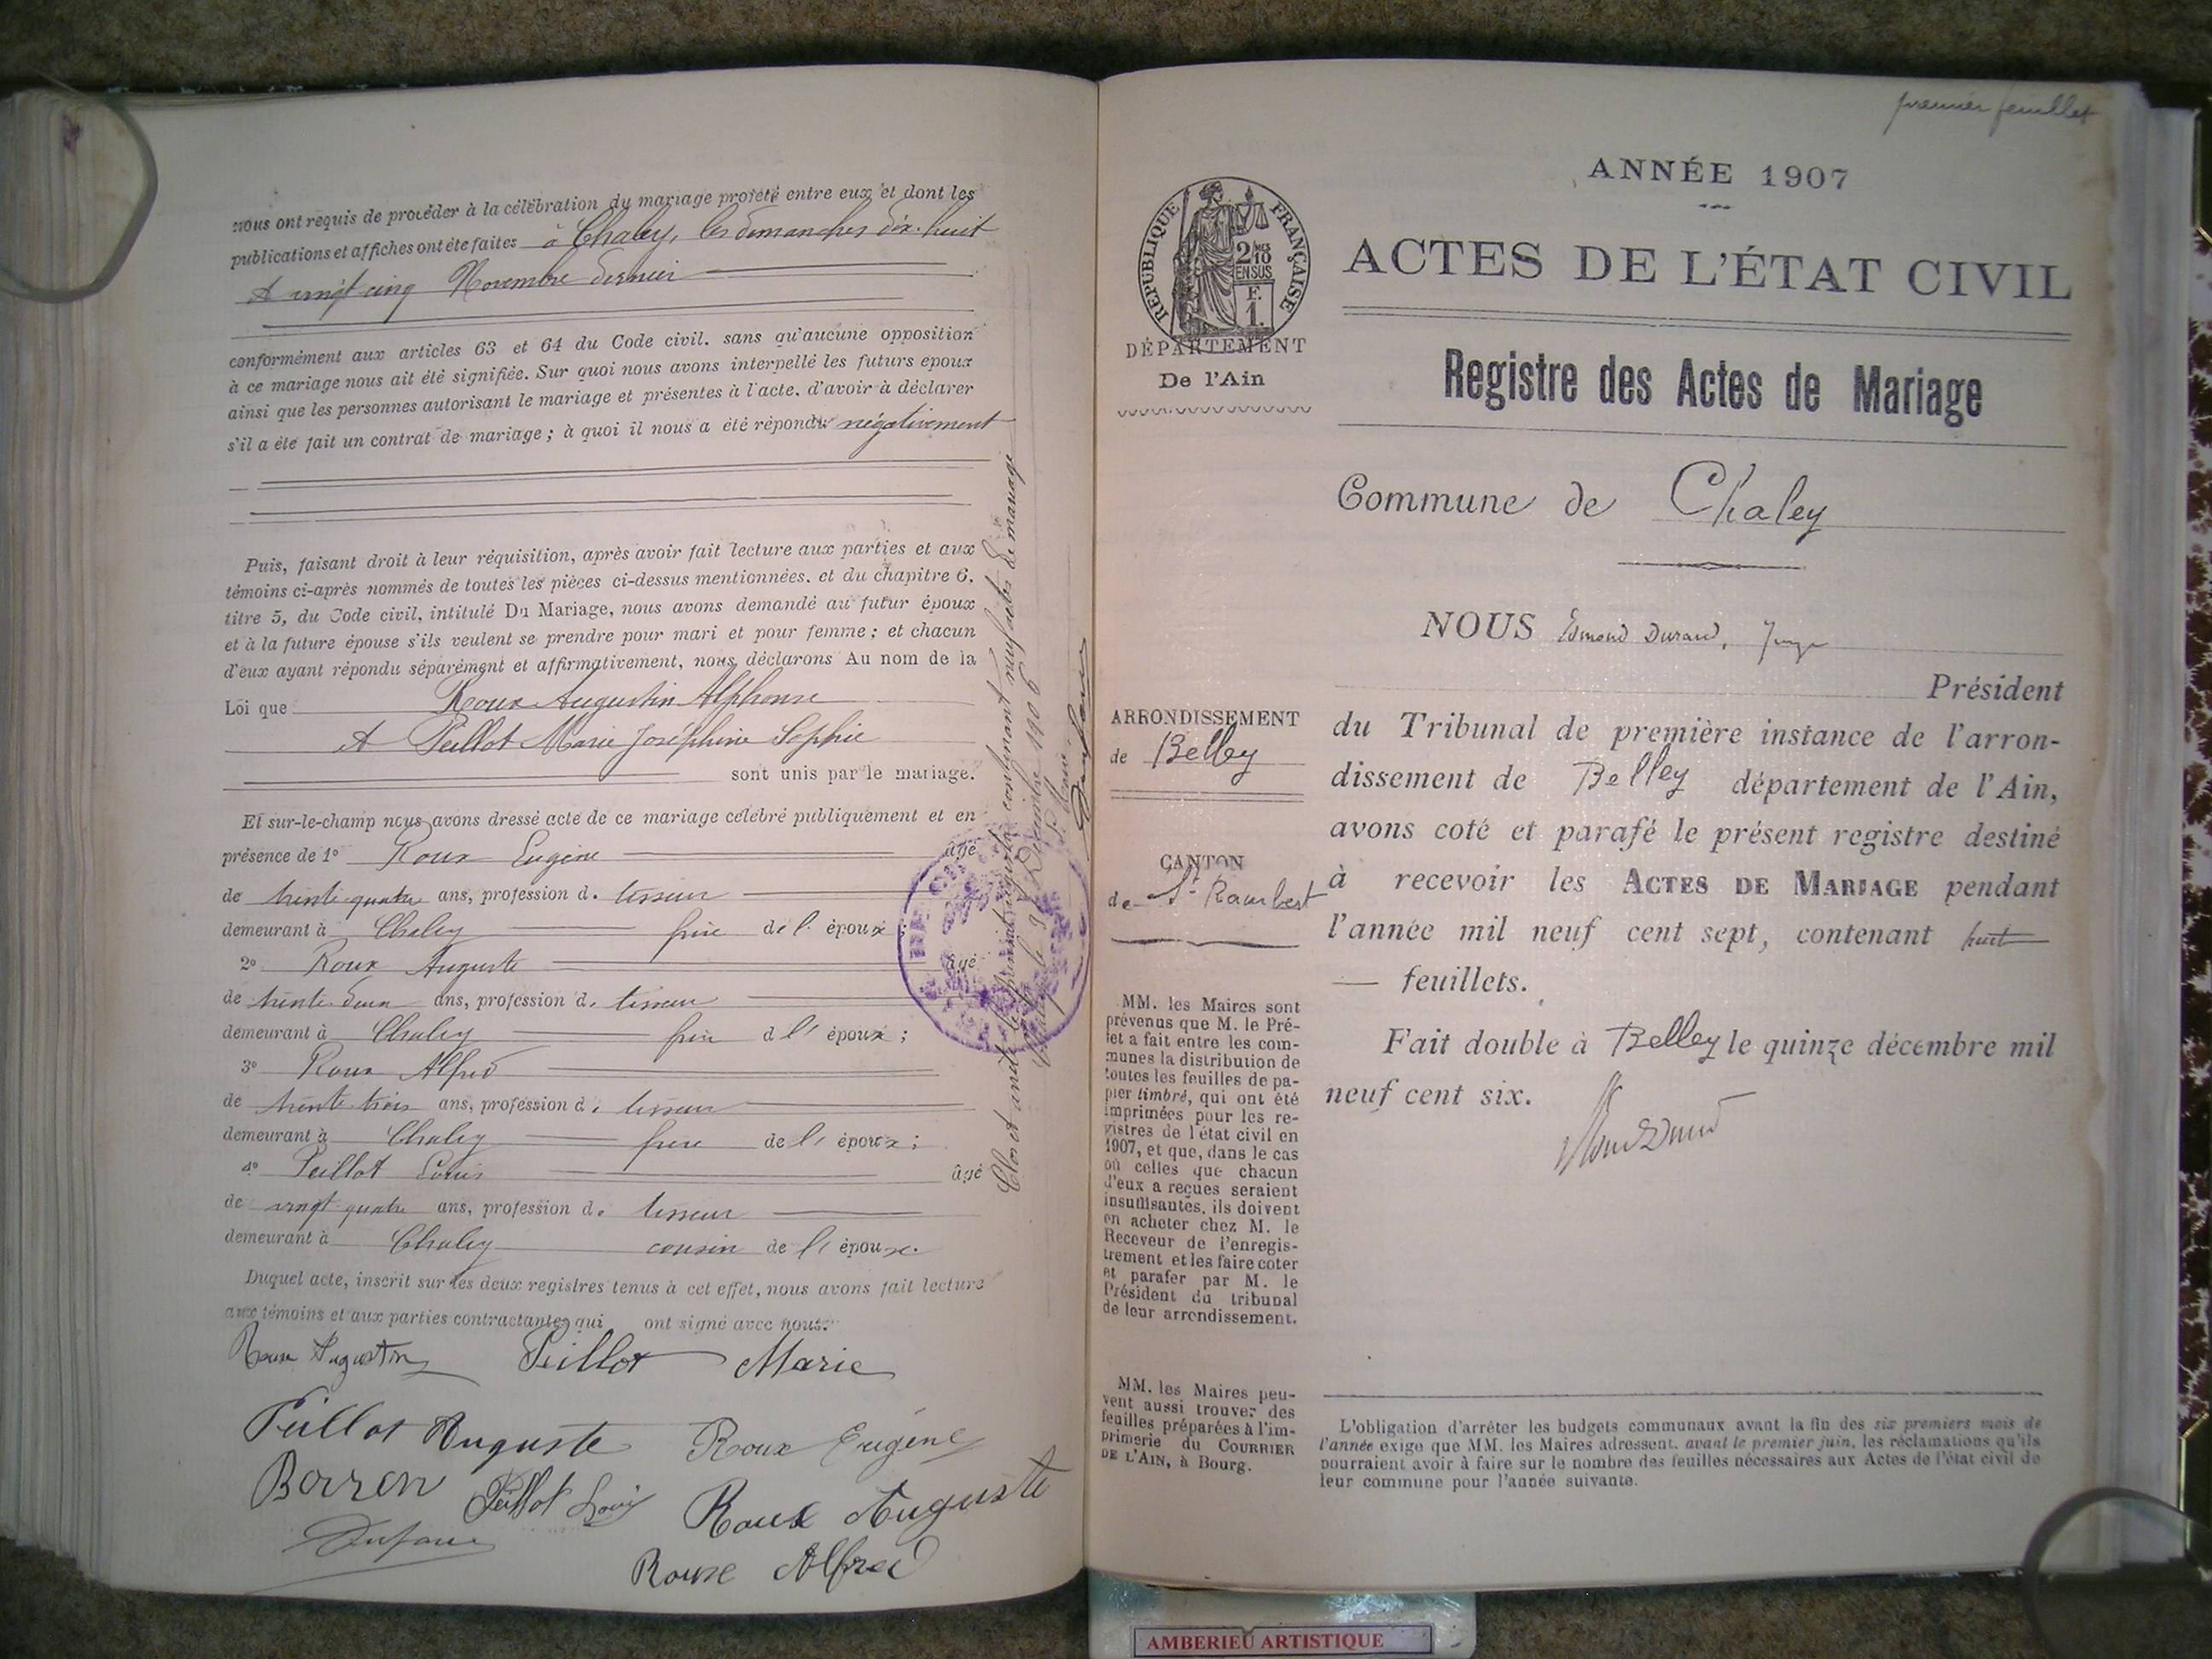 nous ont requis de procéder à la célébration du mariage projeté entre eux et dont les
publications et affiches ont été faites à Chaley, les dimanches dix-huit
et vingt cinq Novembre dernier
conformément aux articles 63 et 64 du Code civil. sans qu'aucune opposition
à ce mariage nous ait été signifiée. Sur quoi nous avons interpellé les futurs époux
ainsi que les personnes autorisant le mariage et présentes à l'acte, d'avoir à déclarer
s'il a été fait un contrat de mariage ; à quoi il nous a été répondu négativement
Puis, faisant droit à leur réquisition, après avoir fait lecture aux parties et aux
témoins ci-après nommés de toutes les pièces ci-dessus mentionnées. et du chapitre 6,
titre 5, du Code civil, intitulé Du Mariage, nous avons demandé au futur époux
et à la future épouse s'ils veulent se prendre pour mari et pour femme ; et chacun
d'eux ayant répondu séparément et affirmativement, nous déclarons Au nom de la
Loi que Roux Augustin Alphonse
et Peillot Marie Joséphine Sophie
sont unis par le mariage.
Et sur-le-champ nous avons dressé acte de ce mariage célébré publiquement et en
présence de 1° Roux Eugène âgé
de trente quatre ans, profession d. tisseur
demeurant à Chaley frère de l. époux ;
2° Roux Auguste âgé
de trente deux ans, profession d. tisseur
demeurant à Chaley frère d l' époux ;
3° Roux Alfred
de trente trois ans, profession d. tisseur
demeurant à Chaley frère de l' époux ;
4° Peillot Louis âgé
de vingt quatre ans, profession d. tisseur
demeurant à Chaley cousin de l' épouse.
Duquel acte, inscrit sur les deux registres tenus à cet effet, nous avons fait lecture
aux témoins et aux parties contractantes qui ont signé avec nous.
Roux Augustin Peillot Marie
Peillot Auguste Roux Eugène
Borren Peillot Louis Roux Auguste
Dufour
Roux Alfred
Clos et arrêté le présent registre contenant neuf actes de mariage
Chaley le 31 Décembre 1906
Le Maire,
Dufour
premier feuillet
ANNÉE 1907
RÉPUBLIQUE FRANÇAISE
2/10 MES
EN SUS
F.
1.
ACTES DE L'ÉTAT CIVIL
DÉPARTEMENT
De l'Ain
Registre des Actes de Mariage
Commune de Chaley
NOUS Edmond Durand, Juge
Président
ARRONDISSEMENT
de Belley
du Tribunal de première instance de l'arron-
dissement de Belley département de l'Ain,
avons coté et parafé le présent registre destiné
CANTON
de St Rambert
à recevoir les ACTES DE MARIAGE pendant
l'année mil neuf cent sept, contenant huit
feuillets.
Fait double à Belley le quinze décembre mil
neuf cent six.
MM. les Maires sont
prévenus que M. le Pré-
fet a fait entre les com-
munes la distribution de
toutes les feuilles de pa-
pier timbré, qui ont été
imprimées pour les re-
gistres de l'état civil en
1907, et que, dans le cas
où celles que chacun
d'eux a reçues seraient
insuffisantes, ils doivent
en acheter chez M. le
Receveur de l'enregis-
trement et les faire coter
et parafer par M. le
Président du tribunal
de leur arrondissement.
MM. les Maires peu-
vent aussi trouver des
feuilles préparées à l'im-
primerie du COURRIER
DE L'AIN, à Bourg.
L'obligation d'arrêter les budgets communaux avant la fin des six premiers mois de
l'année exige que MM. les Maires adressent, avant le premier juin, les réclamations qu'ils
pourraient avoir à faire sur le nombre des feuilles nécessaires aux Actes de l'état civil de
leur commune pour l'année suivante.
AMBERIEU ARTISTIQUE